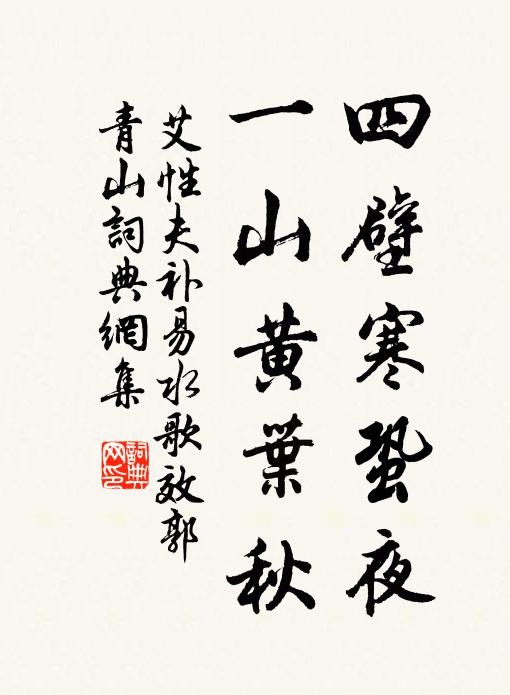 四壁寒蛩夜
一山黃葉秋
艾性夫补易水歌效郭
青山詞典網集
詞典
网印